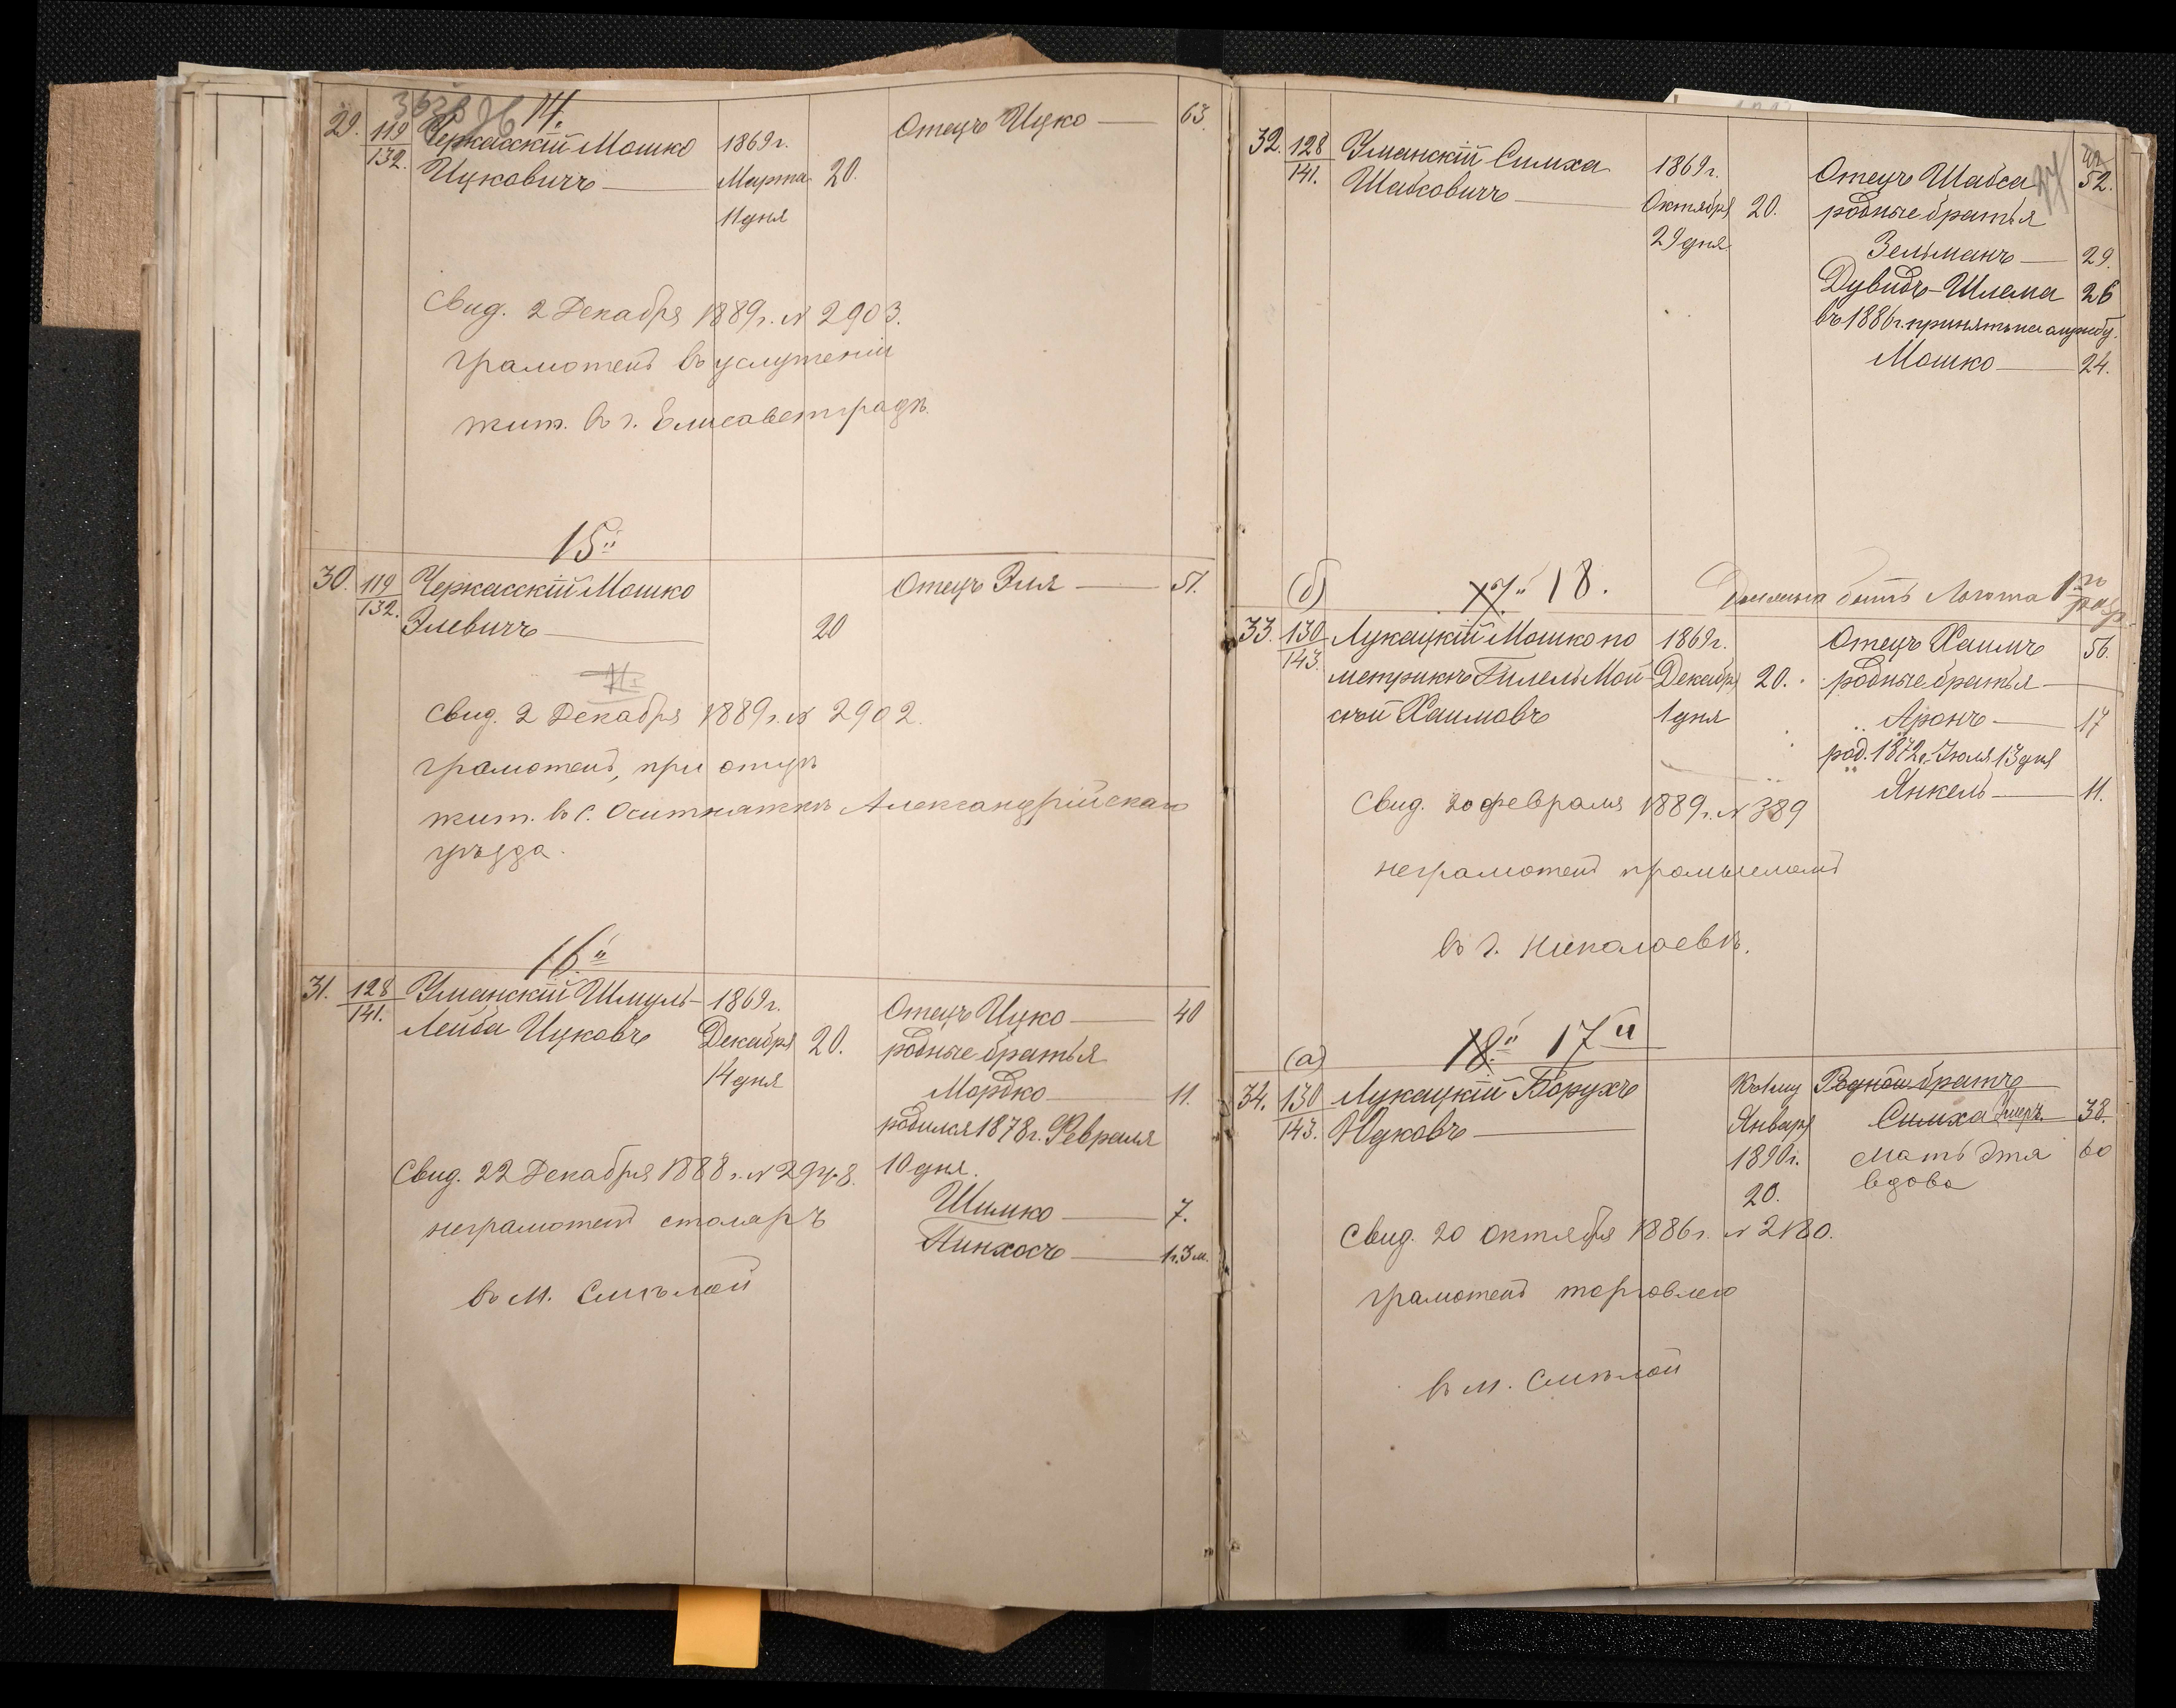 14.
29. 119/132. Черкасскій Мошко 1869 г. Отецъ Ицко — 63.
Ицковичъ — Марта 20.
11 дня
Свид. 2 Декабря 1889 г. № 2903.
грамотенъ въ услуженіи
жит. въ г. Елисаветградѣ.
15й
30. 119/132. Черкасскій Мошко Отецъ Эля — 51.
Элевичъ — 20
Свид. 2 Декабря 1889 г. № 2902.
грамотенъ, при отцѣ
жит. въ с. Оситняжкѣ Александрійскаго
уѣзда.
16й
31. 128/141. Уманскій Шмуль- 1869 г. Отецъ Ицко — 40
Лейба Ицковъ Декабря 20. родные братья
14 дня Мордко — 11.
родился 1878 г. Февраля
10 дня.
Свид. 22 Декабря 1888 г. №
неграмотенъ столяръ
Шимко — 7.
Пинхосъ — 1 г. 3 м.
въ м. Смѣлой
27
32. 128/141. Уманскій Симха 1869 г. Отецъ Шабса 52.
Шабсовичъ — Октября 20. родные братья
29 дня Зельманъ — 29.
Дувидъ-Шлема 26
въ 1886 г. принятъ на службу.
Мошко — 24.
(б) 17й 18. Льгота 1го разр
33. 130/143. Лукацкій Мошко по 1869 г. Отецъ Хаимъ 56.
метрикѣ Гилель Мой- Декабря 20. родные братья —
сѣй Хаимовъ 1 дня Аронъ — 17
род. 1872 г. Іюля 13 дня
Янкель — 11.
Свид. 20 февраля 1889 г. № 389
неграмотенъ промысломъ
въ г. Николаевѣ.
(а) 18й 17й
34. 130/143. Лукацкій Борухъ Къ 1му Родной братъ
Юдковъ — Января Симха умеръ 38.
1890 г. мать Этя 60
20. вдова
Свид. 20 Октября 1886 г. № 2180.
грамотенъ торговлею
въ м. Смѣлой